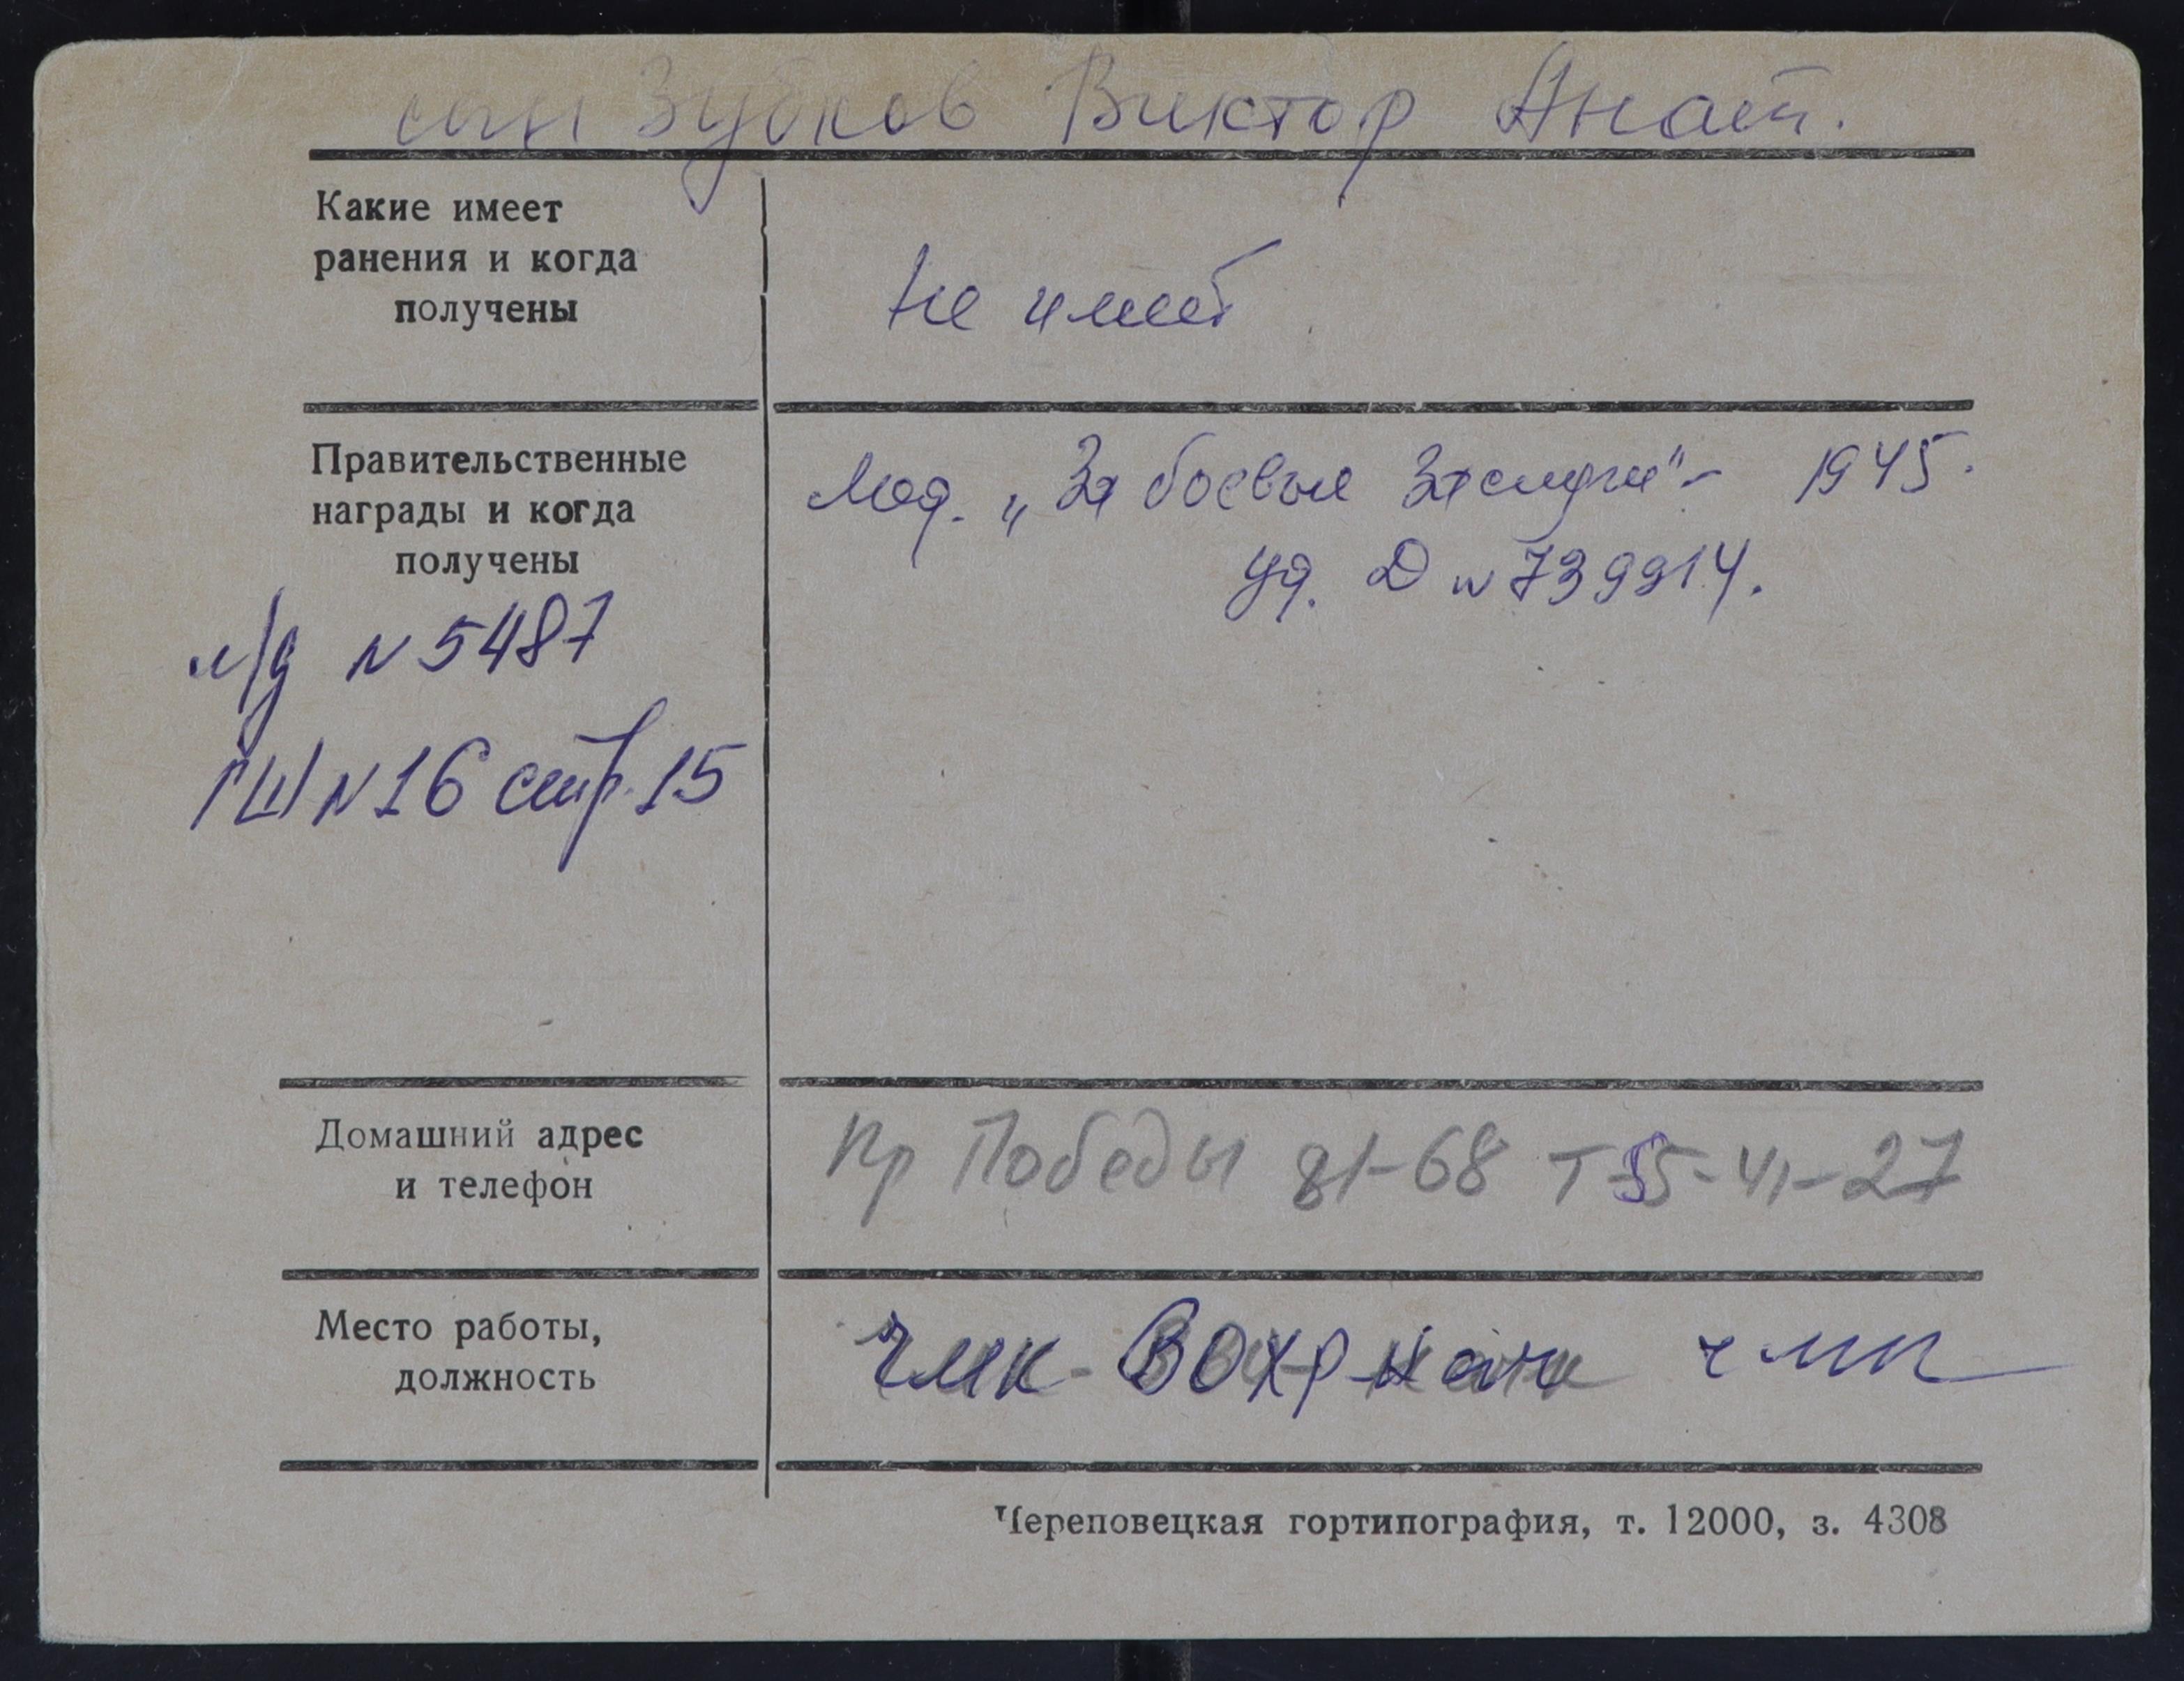 сын Зубков Виктор Анат.
Какие имеет
ранения и когда
получены
Не имеет
Правительственные
награды и когда
получены
Мед. „За боевые заслуги" - 1945.
уд. Д № 739914.
л/д № 5487
ГШ № 16 стр. 15
Домашний адрес
и телефон
Пр Победы 81-68 Т-55-41-27
Место работы,
должность
ЧМК - ВОХР ЧМК
Череповецкая гортипография, т. 12000, з. 4308